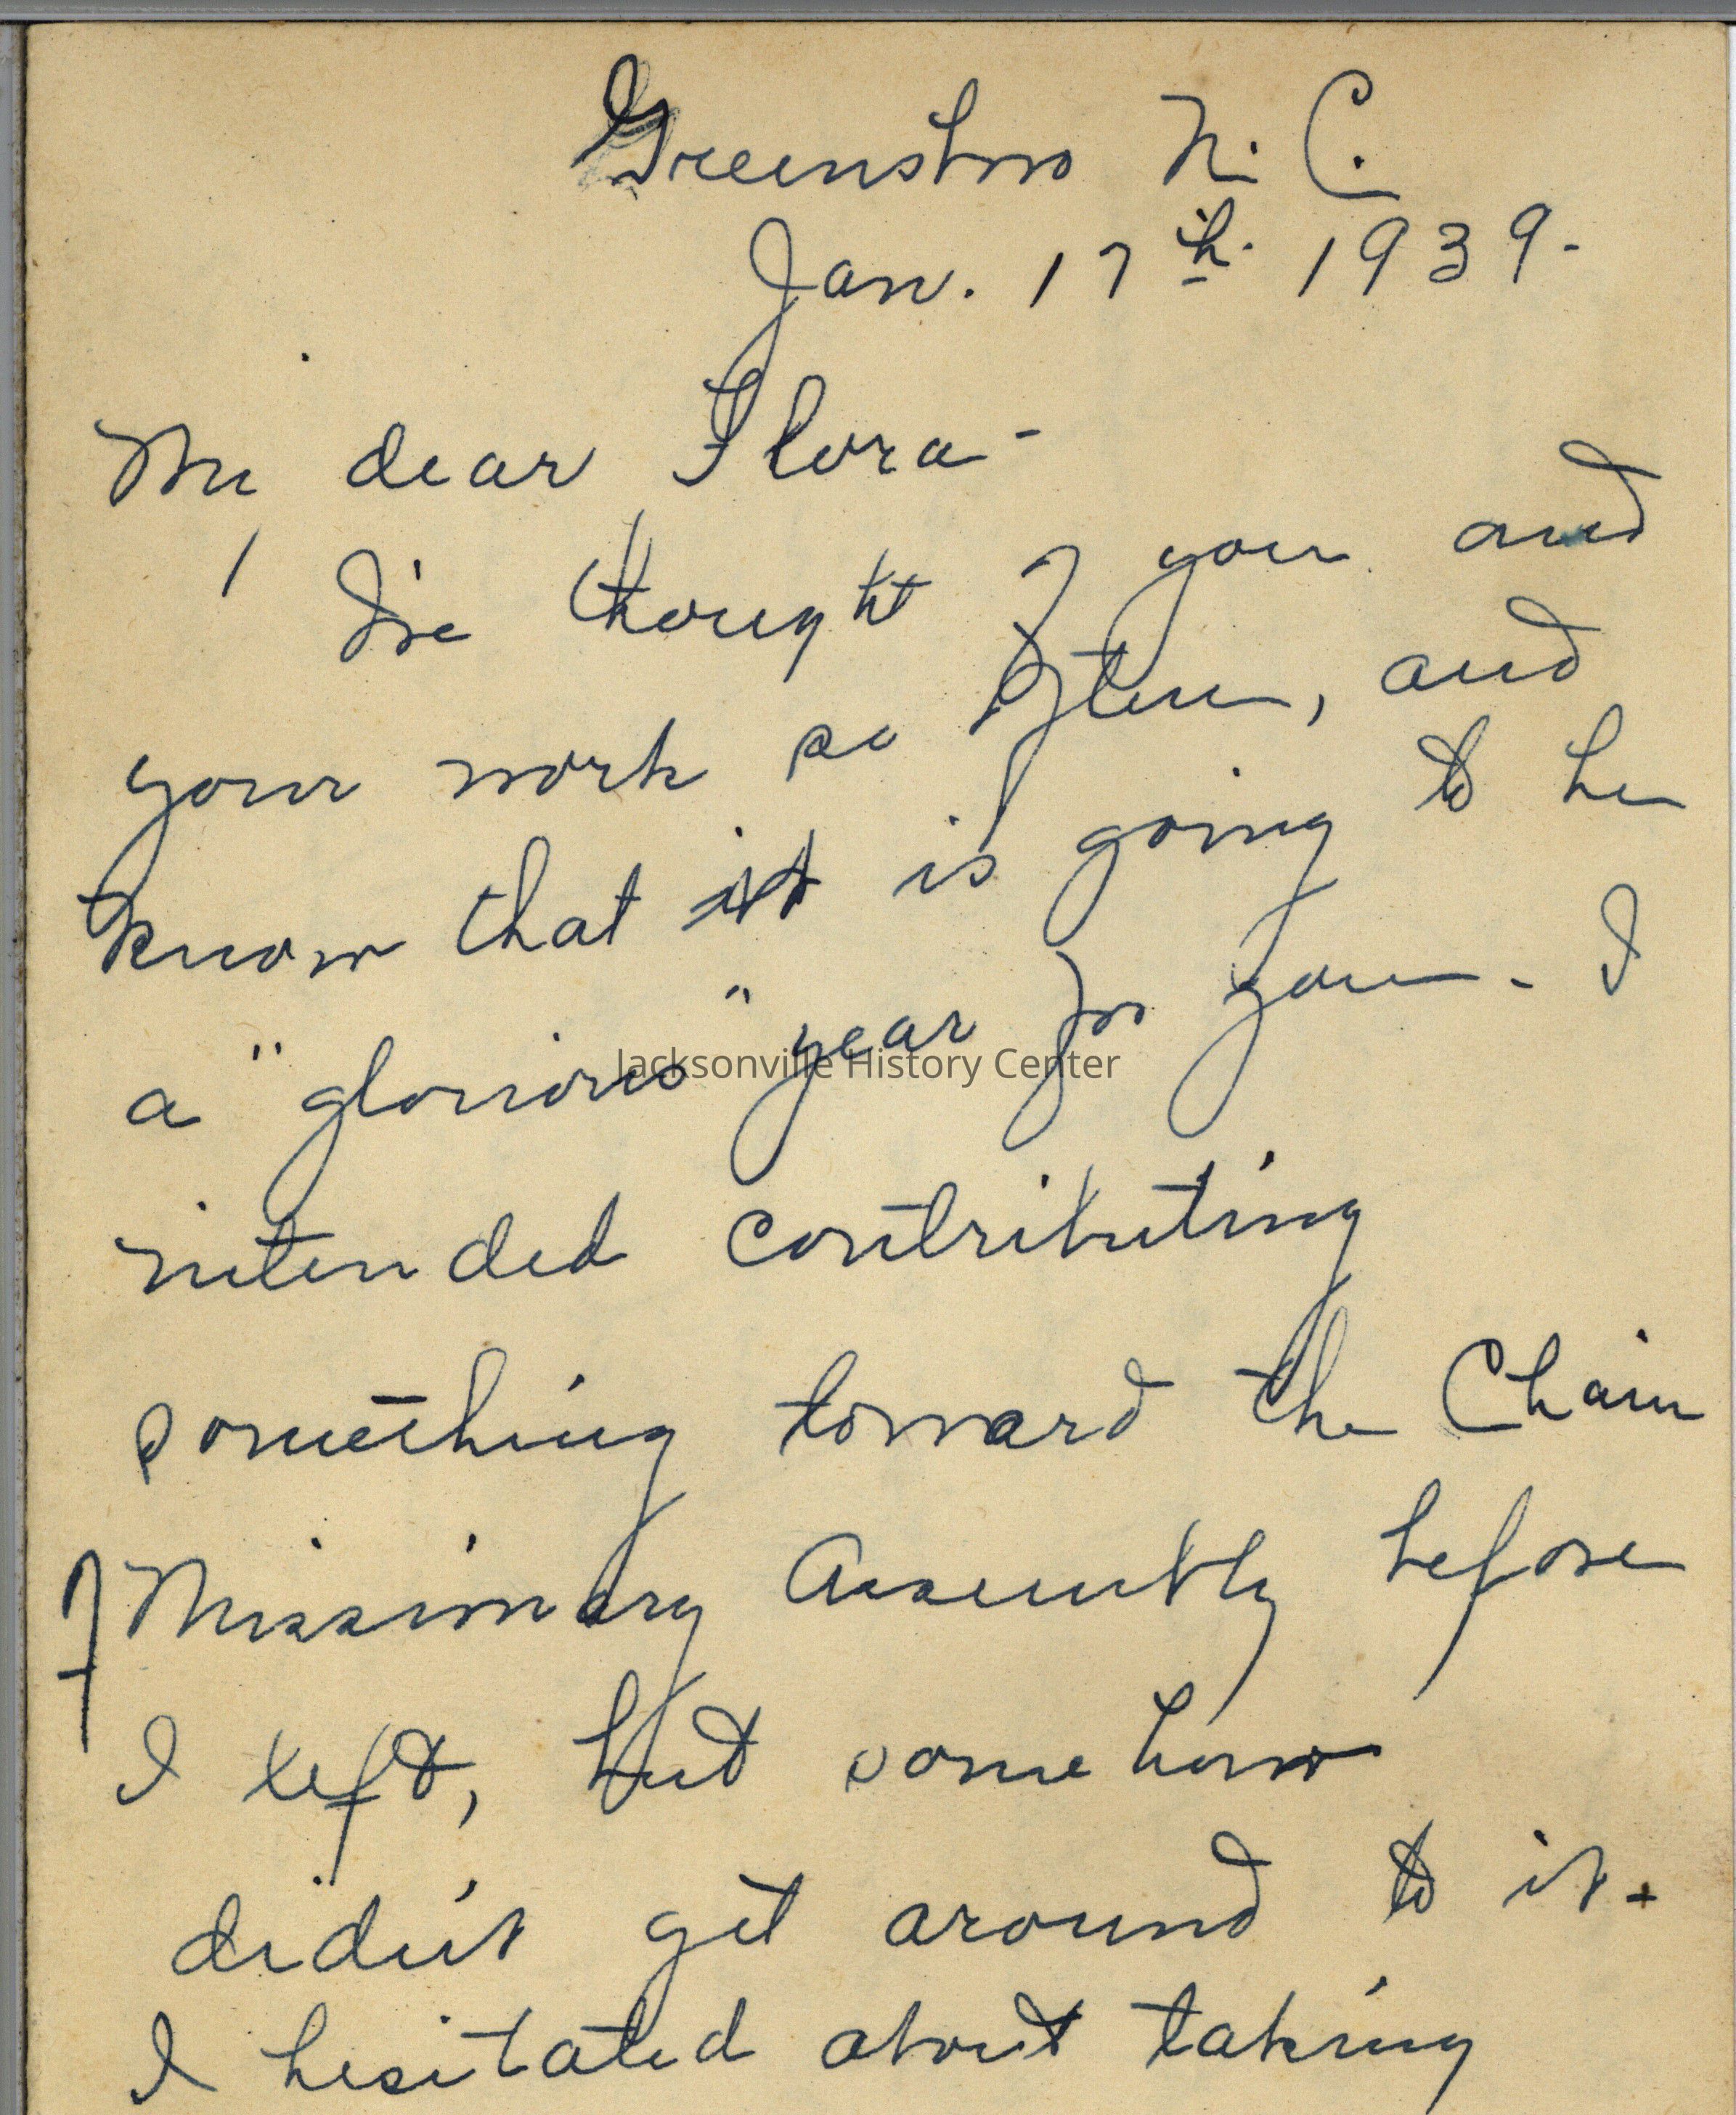 Greensboro N. C.
Jan. 17th. 1939.
My dear Flora-
I've thought of you and
your work so often, and
know that it is going to be
a "glorious" year for you - I
intended contributing
something toward the Chain
of Missionary Assembly before
I left, but somehow
didn't get around to it.
I hesitated about taking
Jacksonville History Center